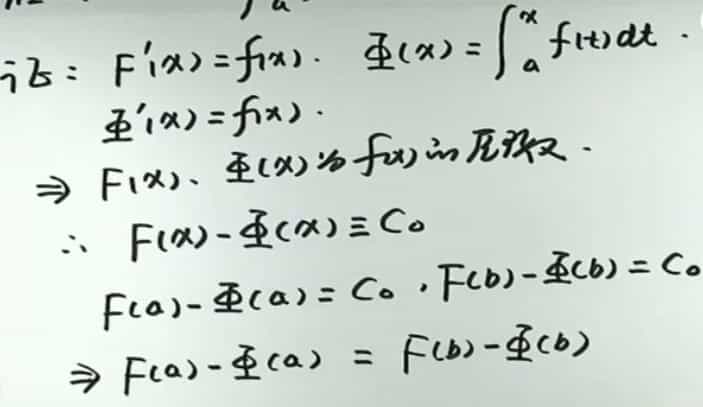 证: F'(x)=f(x). Φ(x)=∫ₐˣ f(t)dt.
Φ'(x)=f(x).
⇒ F(x)、Φ(x)为f(x)的原函数.
∴ F(x)-Φ(x)≡C₀
F(a)-Φ(a)=C₀,F(b)-Φ(b)=C₀
⇒ F(a)-Φ(a) = F(b)-Φ(b)